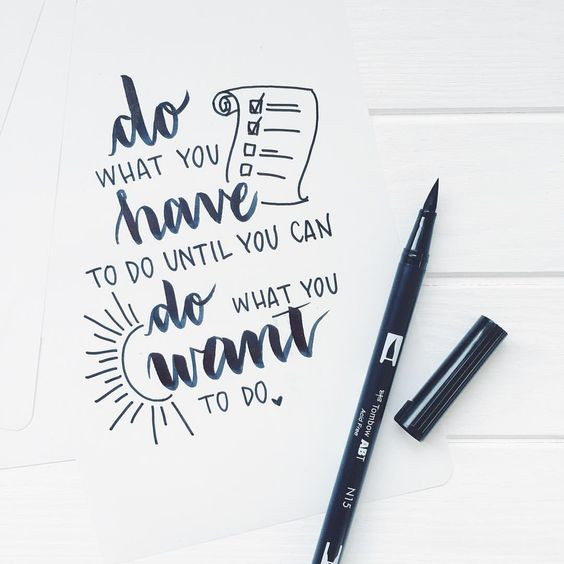 do
WHAT YOU
have
TO DO UNTIL YOU CAN
do WHAT YOU
want
TO DO.
Tombow ABT
Acid Free
N15